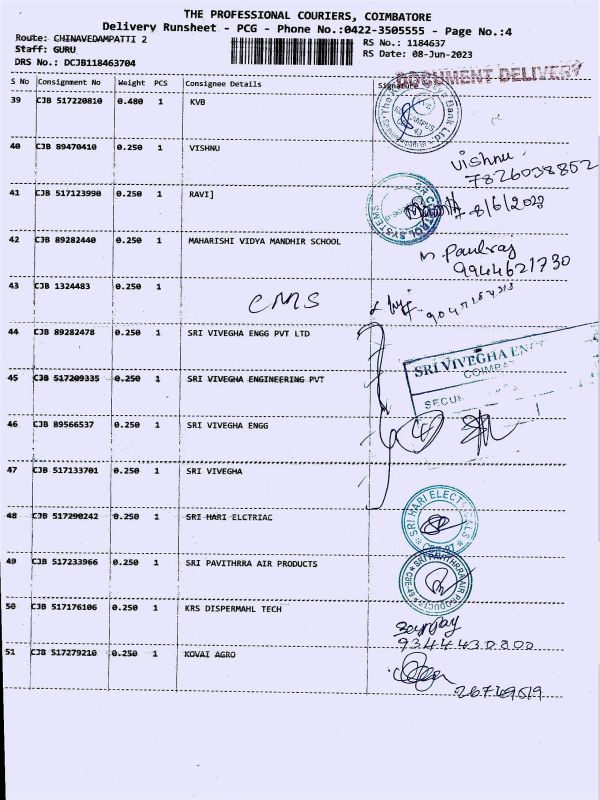 THE PROFESSIONAL COURIERS, COIMBATORE
Delivery Runsheet - PCG - Phone No.:0422-3505555 - Page No.:4
Route: CHINAVEDAMPATTI 2
RS No.: 1184637
Staff: GURU
RS Date: 08-Jun-2023
DRS No.: DCJB118463704
DOCUMENT DELIVERY
S No Consignment No Weight PCS Consignee Details Signature
39 CJB 517220810 0.480 1 KVB
40 CJB 89470410 0.250 1 VISHNU
Vishnu
7826038852
41 CJB 517123990 0.250 1 RAVI]
8/6/2023
42 CJB 89282440 0.250 1 MAHARISHI VIDYA MANDHIR SCHOOL
M. Paulraj
9944621730
43 CJB 1324483 0.250 1
CMS
44 CJB 89282478 0.250 1 SRI VIVEGHA ENGG PVT LTD
SRI VIVEGHA
45 CJB 517209335 0.250 1 SRI VIVEGHA ENGINEERING PVT
46 CJB 89566537 0.250 1 SRI VIVEGHA ENGG
47 CJB 517133701 0.250 1 SRI VIVEGHA
48 CJB 517290242 0.250 1 SRI HARI ELCTRIAC
SRI HARI ELECTRICALS
49 CJB 517233966 0.250 1 SRI PAVITHRRA AIR PRODUCTS
SRI PAVITHRRA AIR PRODUCTS
50 CJB 517176106 0.250 1 KRS DISPERMAHL TECH
9344430800
51 CJB 517279210 0.250 1 KOVAI AGRO